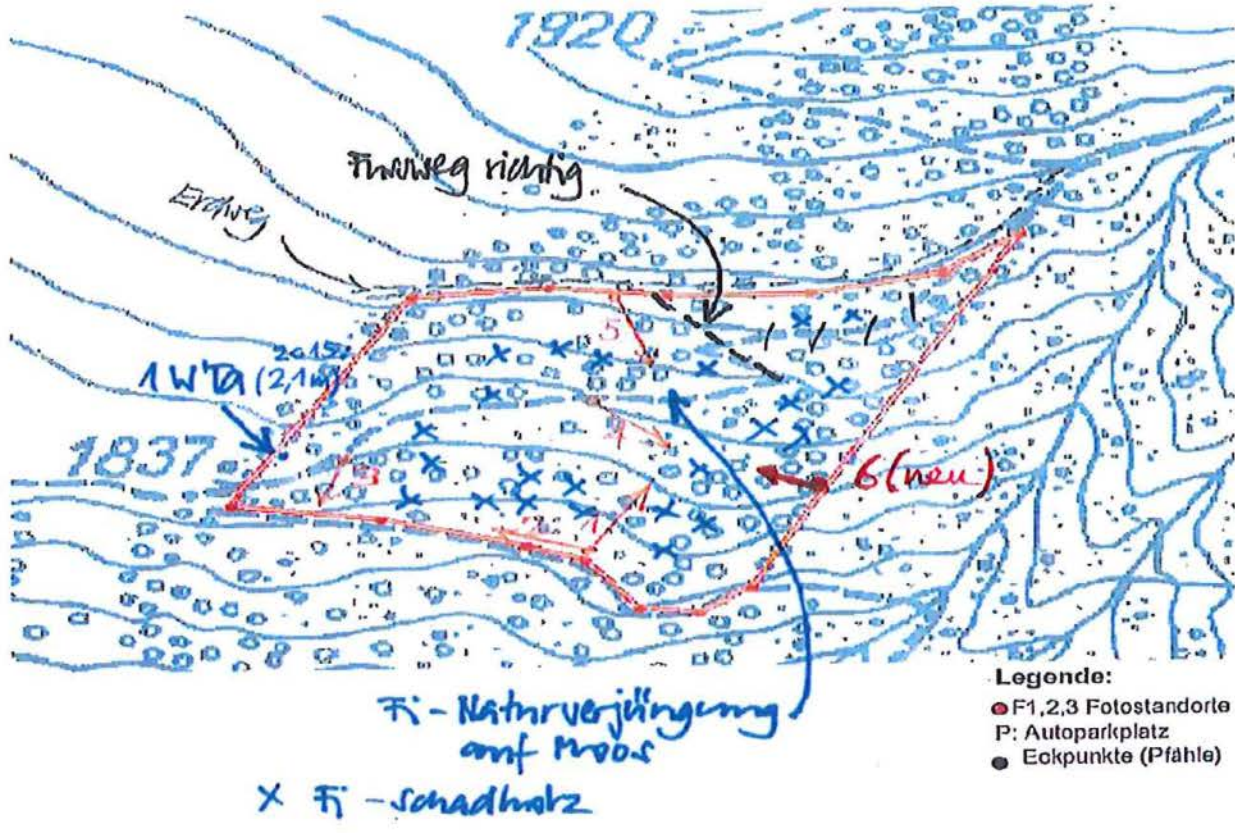 1920
Fussweg richtig
Erdweg
5
1 WTa (2,1 m)
1837
4
3
6 (neu)
2
1
Fi - Naturverjüngung
auf Moos
x Fi - Schadholz
Legende:
F1,2,3 Fotostandorte
P: Autoparkplatz
Eckpunkte (Pfähle)